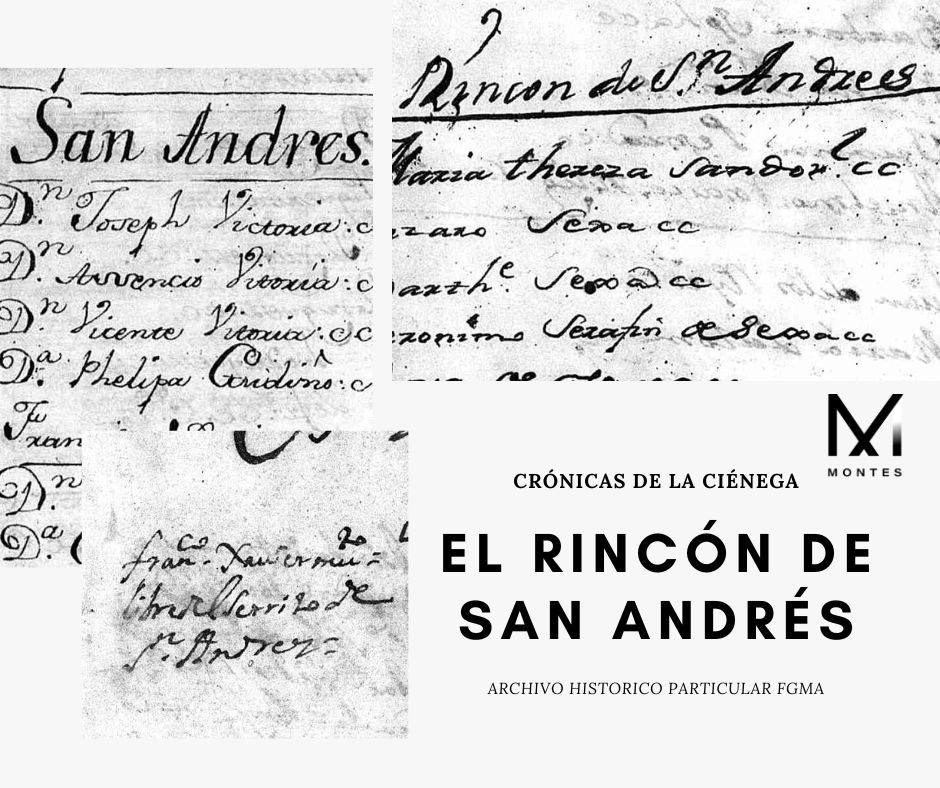 San Andres.
D.n Joseph Victoria: c
D.n Vitoria: c
D.n Vicente Vitoria: cc
D.a Phelipa
Fran
D.n
D.a
Rincon de S.n Andrees
Maria thereza Sandov.l cc
zaro Sexa cc
barth.e Sexa cc
eronimo Serafin de Sexa cc
fran.co Xavier mu.to =
libre del Serrito de
S.n Andrez =
M
MONTES
CRÓNICAS DE LA CIÉNEGA
EL RINCÓN DE
SAN ANDRÉS
ARCHIVO HISTORICO PARTICULAR FGMA